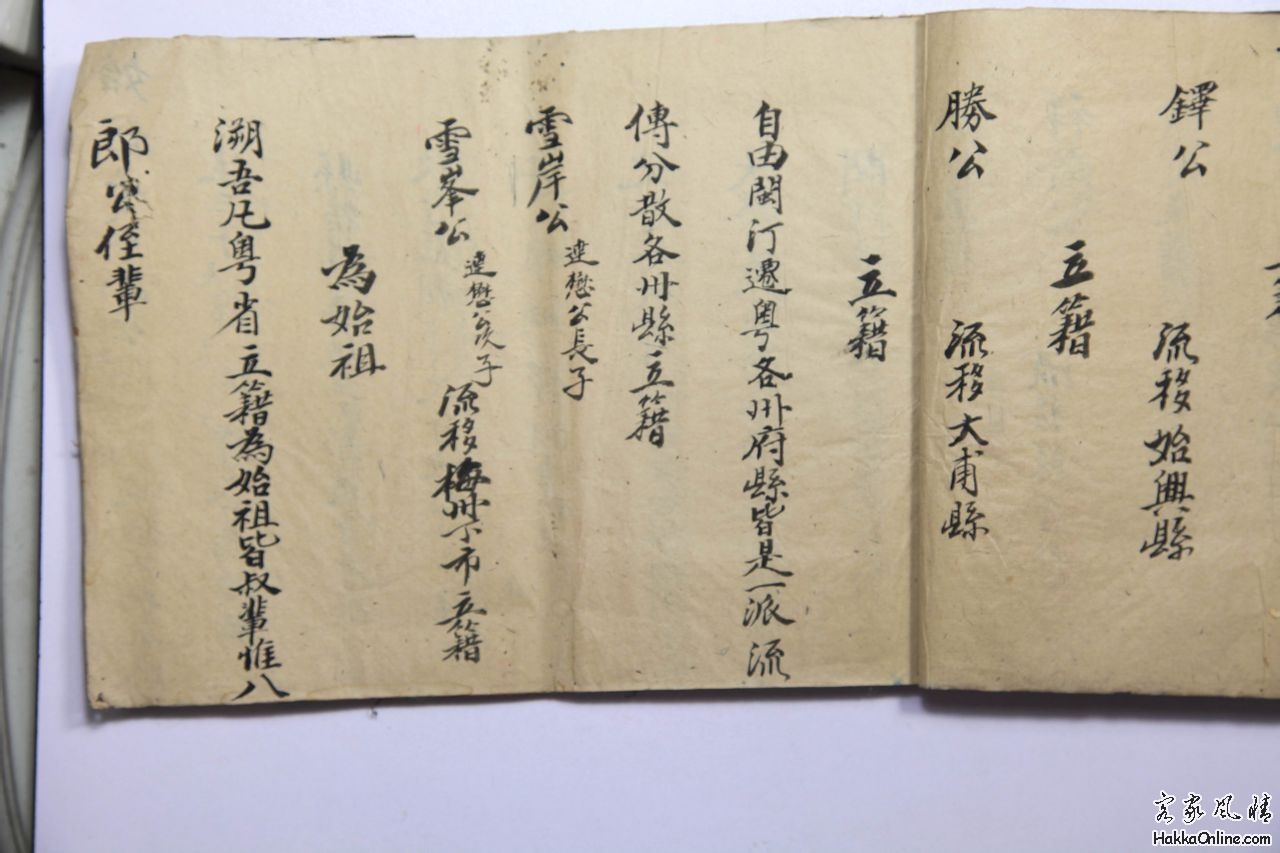 鐸公 流移始興縣
立籍
勝公 流移大甫縣
立籍
自由閩汀遷粤各州府縣皆是一派流
傳分散各州縣立籍
雪岸公 達懋公長子
雪峯公 達懋公次子 流移梅州下市立籍
為始祖
溯吾凡粤省立籍為始祖皆叔輩惟八
郎公侄輩
客家風情
HakkaOnline.com